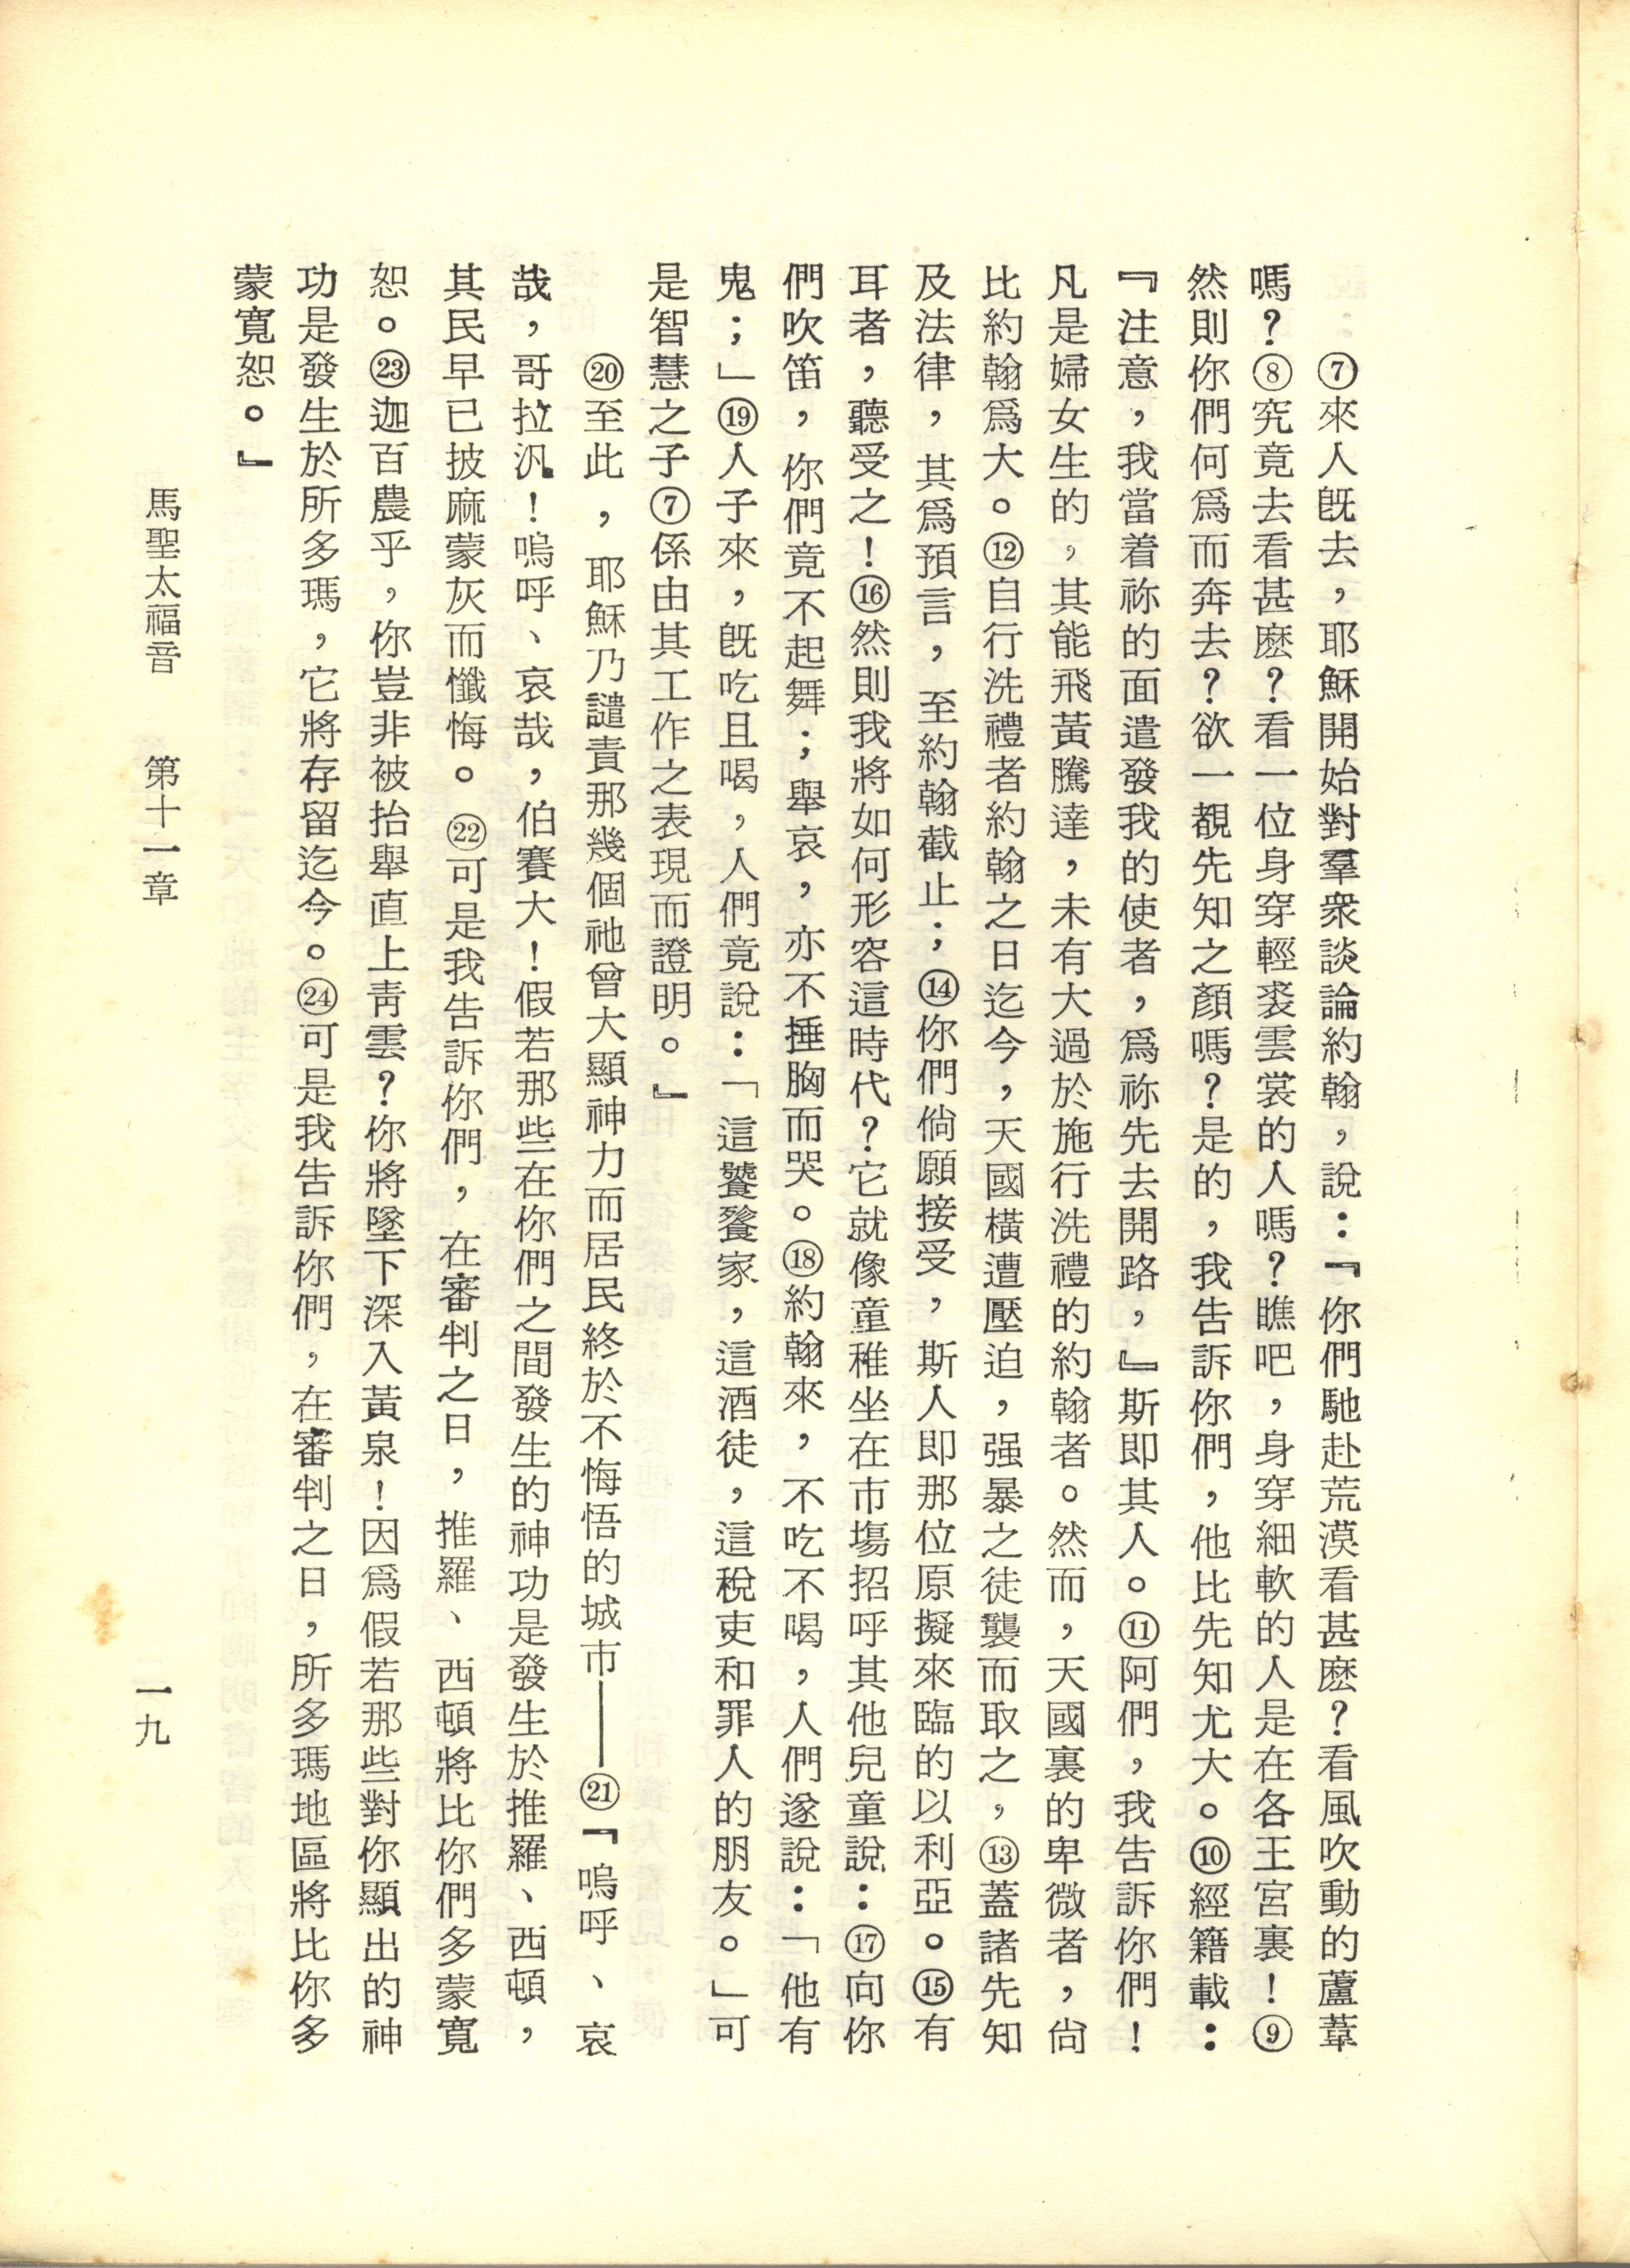 ⑦來人旣去，耶穌開始對羣衆談論約翰，說：『你們馳赴荒漠看甚麽？看風吹動的蘆葦
嗎？⑧究竟去看甚麽？看一位身穿輕裘雲裳的人嗎？瞧吧，身穿細軟的人是在各王宮裏！⑨
然則你們何爲而奔去？欲一覩先知之顏嗎？是的，我告訴你們，他比先知尤大。⑩經籍載：
『注意，我當着祢的面遣發我的使者，爲祢先去開路，』斯即其人。⑪阿們，我告訴你們！
凡是婦女生的，其能飛黃騰達，未有大過於施行洗禮的約翰者。然而，天國裏的卑微者，尙
比約翰爲大。⑫自行洗禮者約翰之日迄今，天國橫遭壓迫，强暴之徒襲而取之，⑬蓋諸先知
及法律，其爲預言，至約翰截止；⑭你們倘願接受，斯人即那位原擬來臨的以利亞。⑮有
耳者，聽受之！⑯然則我將如何形容這時代？它就像童稚坐在市塲招呼其他兒童說：⑰向你
們吹笛，你們竟不起舞；舉哀，亦不捶胸而哭。⑱約翰來，不吃不喝，人們遂說：「他有
鬼；」⑲人子來，旣吃且喝，人們竟說：「這饕餮家，這酒徒，這稅吏和罪人的朋友。」可
是智慧之子⑦係由其工作之表現而證明。』
⑳至此，耶穌乃譴責那幾個祂曾大顯神力而居民終於不悔悟的城市——㉑『嗚呼、哀
哉，哥拉汎！嗚呼、哀哉，伯賽大！假若那些在你們之間發生的神功是發生於推羅、西頓，
其民早已披麻蒙灰而懺悔。㉒可是我告訴你們，在審判之日，推羅、西頓將比你們多蒙寬
恕。㉓迦百農乎，你豈非被抬舉直上靑雲？你將墜下深入黃泉！因爲假若那些對你顯出的神
功是發生於所多瑪，它將存留迄今。㉔可是我告訴你們，在審判之日，所多瑪地區將比你多
蒙寬恕。』
馬聖太福音　第十一章　一九